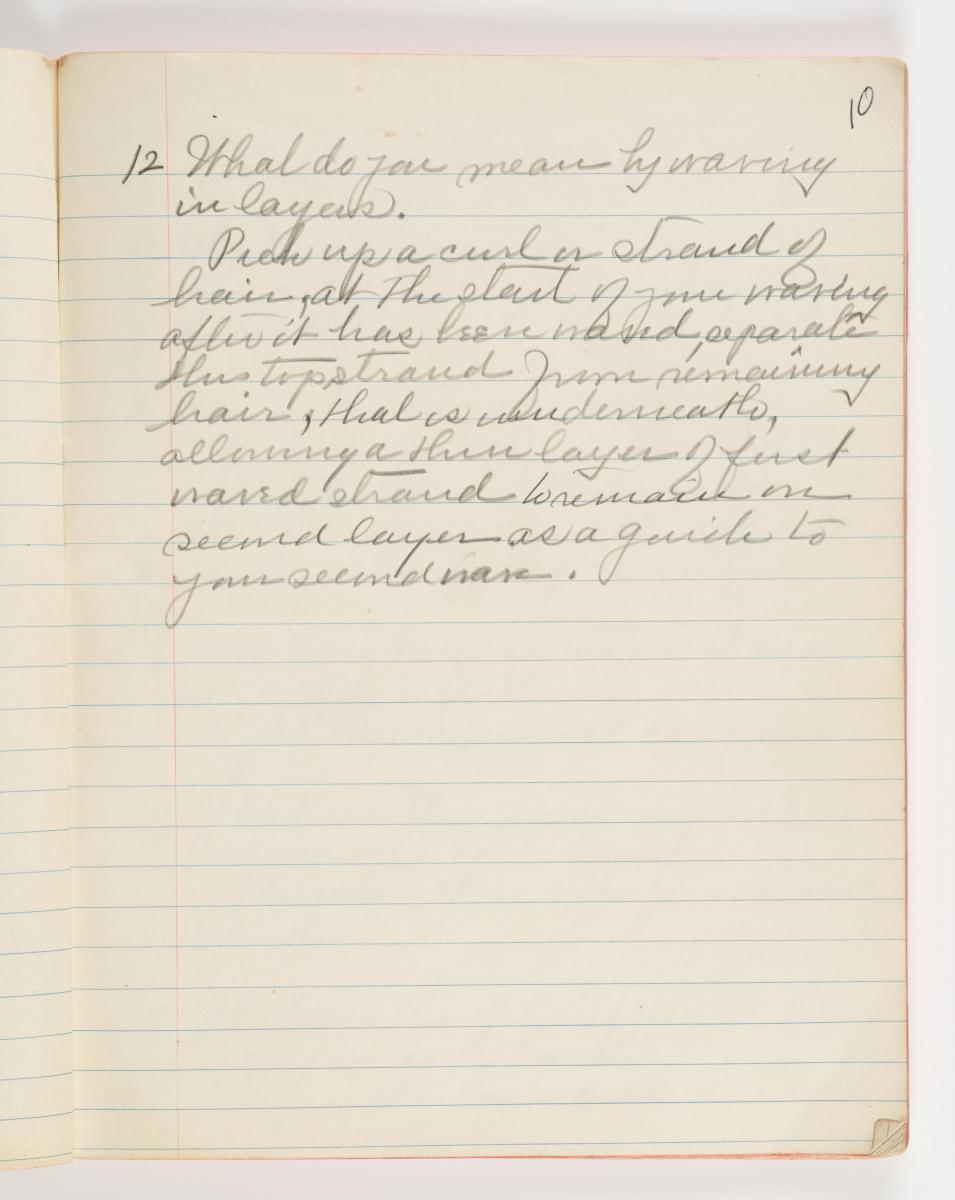 10
12 What do you mean by waving
in layers.
Pick up a curl or strand of
hair, at the start of your waving
after it has been waved, separate
this top strand from remaining
hair, that is underneath,
allowing a thin layer of first
waved strand to remain on
second layer as a guide to
your second wave.